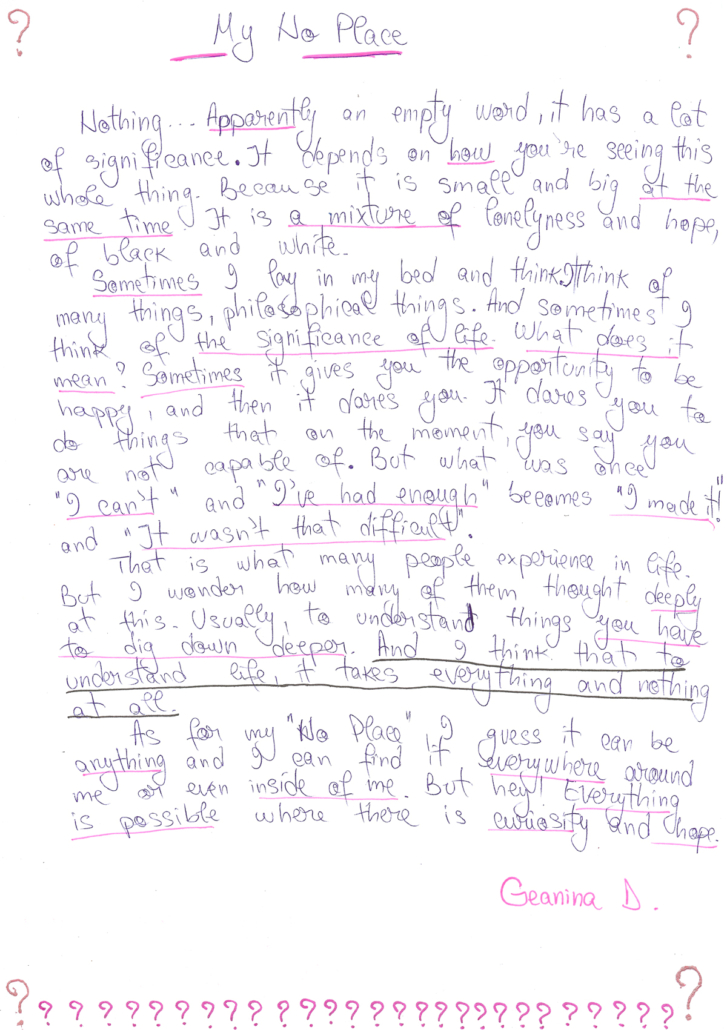 ? My No Place ?
Nothing... Apparently an empty word, it has a lot
of significance. It depends on how you're seeing this
whole thing. Because it is small and big at the
same time. It is a mixture of lonelyness and hope,
of black and white.
Sometimes I lay in my bed and think. I think of
many things, philosophical things. And sometimes I
think of the significance of life. What does it
mean? Sometimes it gives you the opportunity to be
happy, and then it dares you. It dares you to
do things that on the moment, you say you
are not capable of. But what was once
"I can't" and "I've had enough" becomes "I made it!"
and "It wasn't that difficult".
That is what many people experience in life.
But I wonder how many of them thought deeply
at this. Usually, to understand things you have
to dig down deeper. And I think that to
understand life, it takes everything and nothing
at all.
As for my "No Place", I guess it can be
anything and I can find it everywhere around
me or even inside of me. But hey! Everything
is possible where there is curiosity and hope.
Geanina D.
? ? ? ? ? ? ? ? ? ? ? ? ? ? ? ? ? ? ? ? ? ? ? ? ? ? ? ? ?